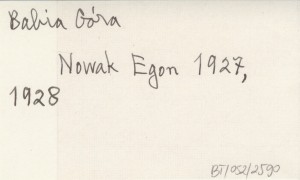 Babia Góra
Nowak Egon 1927,
1928
BT/052/2590